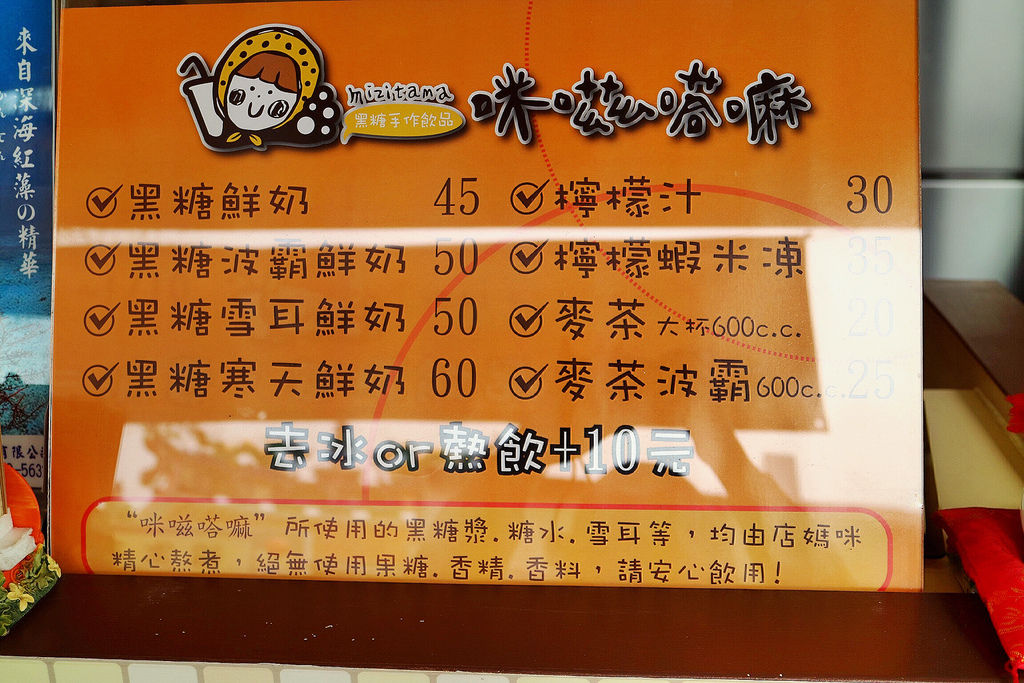 來自深海紅藻の精華
mizitama
黑糖手作飲品
咪嗞嗒嘛
黑糖鮮奶 45
黑糖波霸鮮奶 50
黑糖雪耳鮮奶 50
黑糖寒天鮮奶 60
檸檬汁 30
檸檬蝦米凍 35
麥茶大杯600c.c. 20
麥茶波霸600c.c. 25
去冰or熱飲+10元
“咪嗞嗒嘛”所使用的黑糖漿.糖水.雪耳等，均由店媽咪
精心熬煮，絕無使用果糖.香精.香料，請安心飲用!
有限公
-563